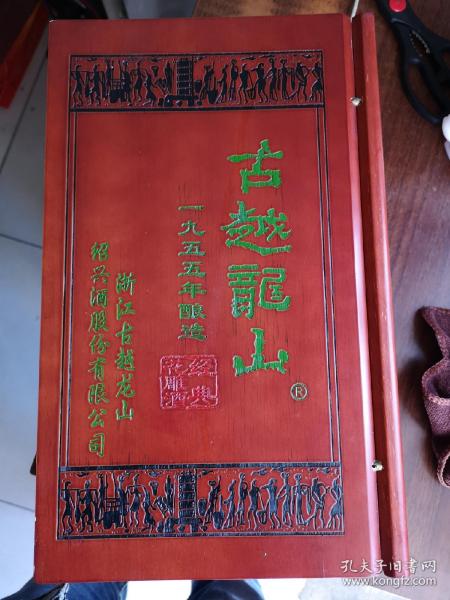 古越龍山®
一九五五年酿造
经典
花雕酒
浙江古越龙山
绍兴酒股份有限公司
孔夫子旧书网
www.kongfz.com